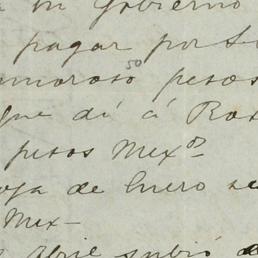 mi Gobierno
pagar por su
moroso 50 pesos
que di á Ros
pesos Mexos
de Enero se
Mex—
Abril subió de